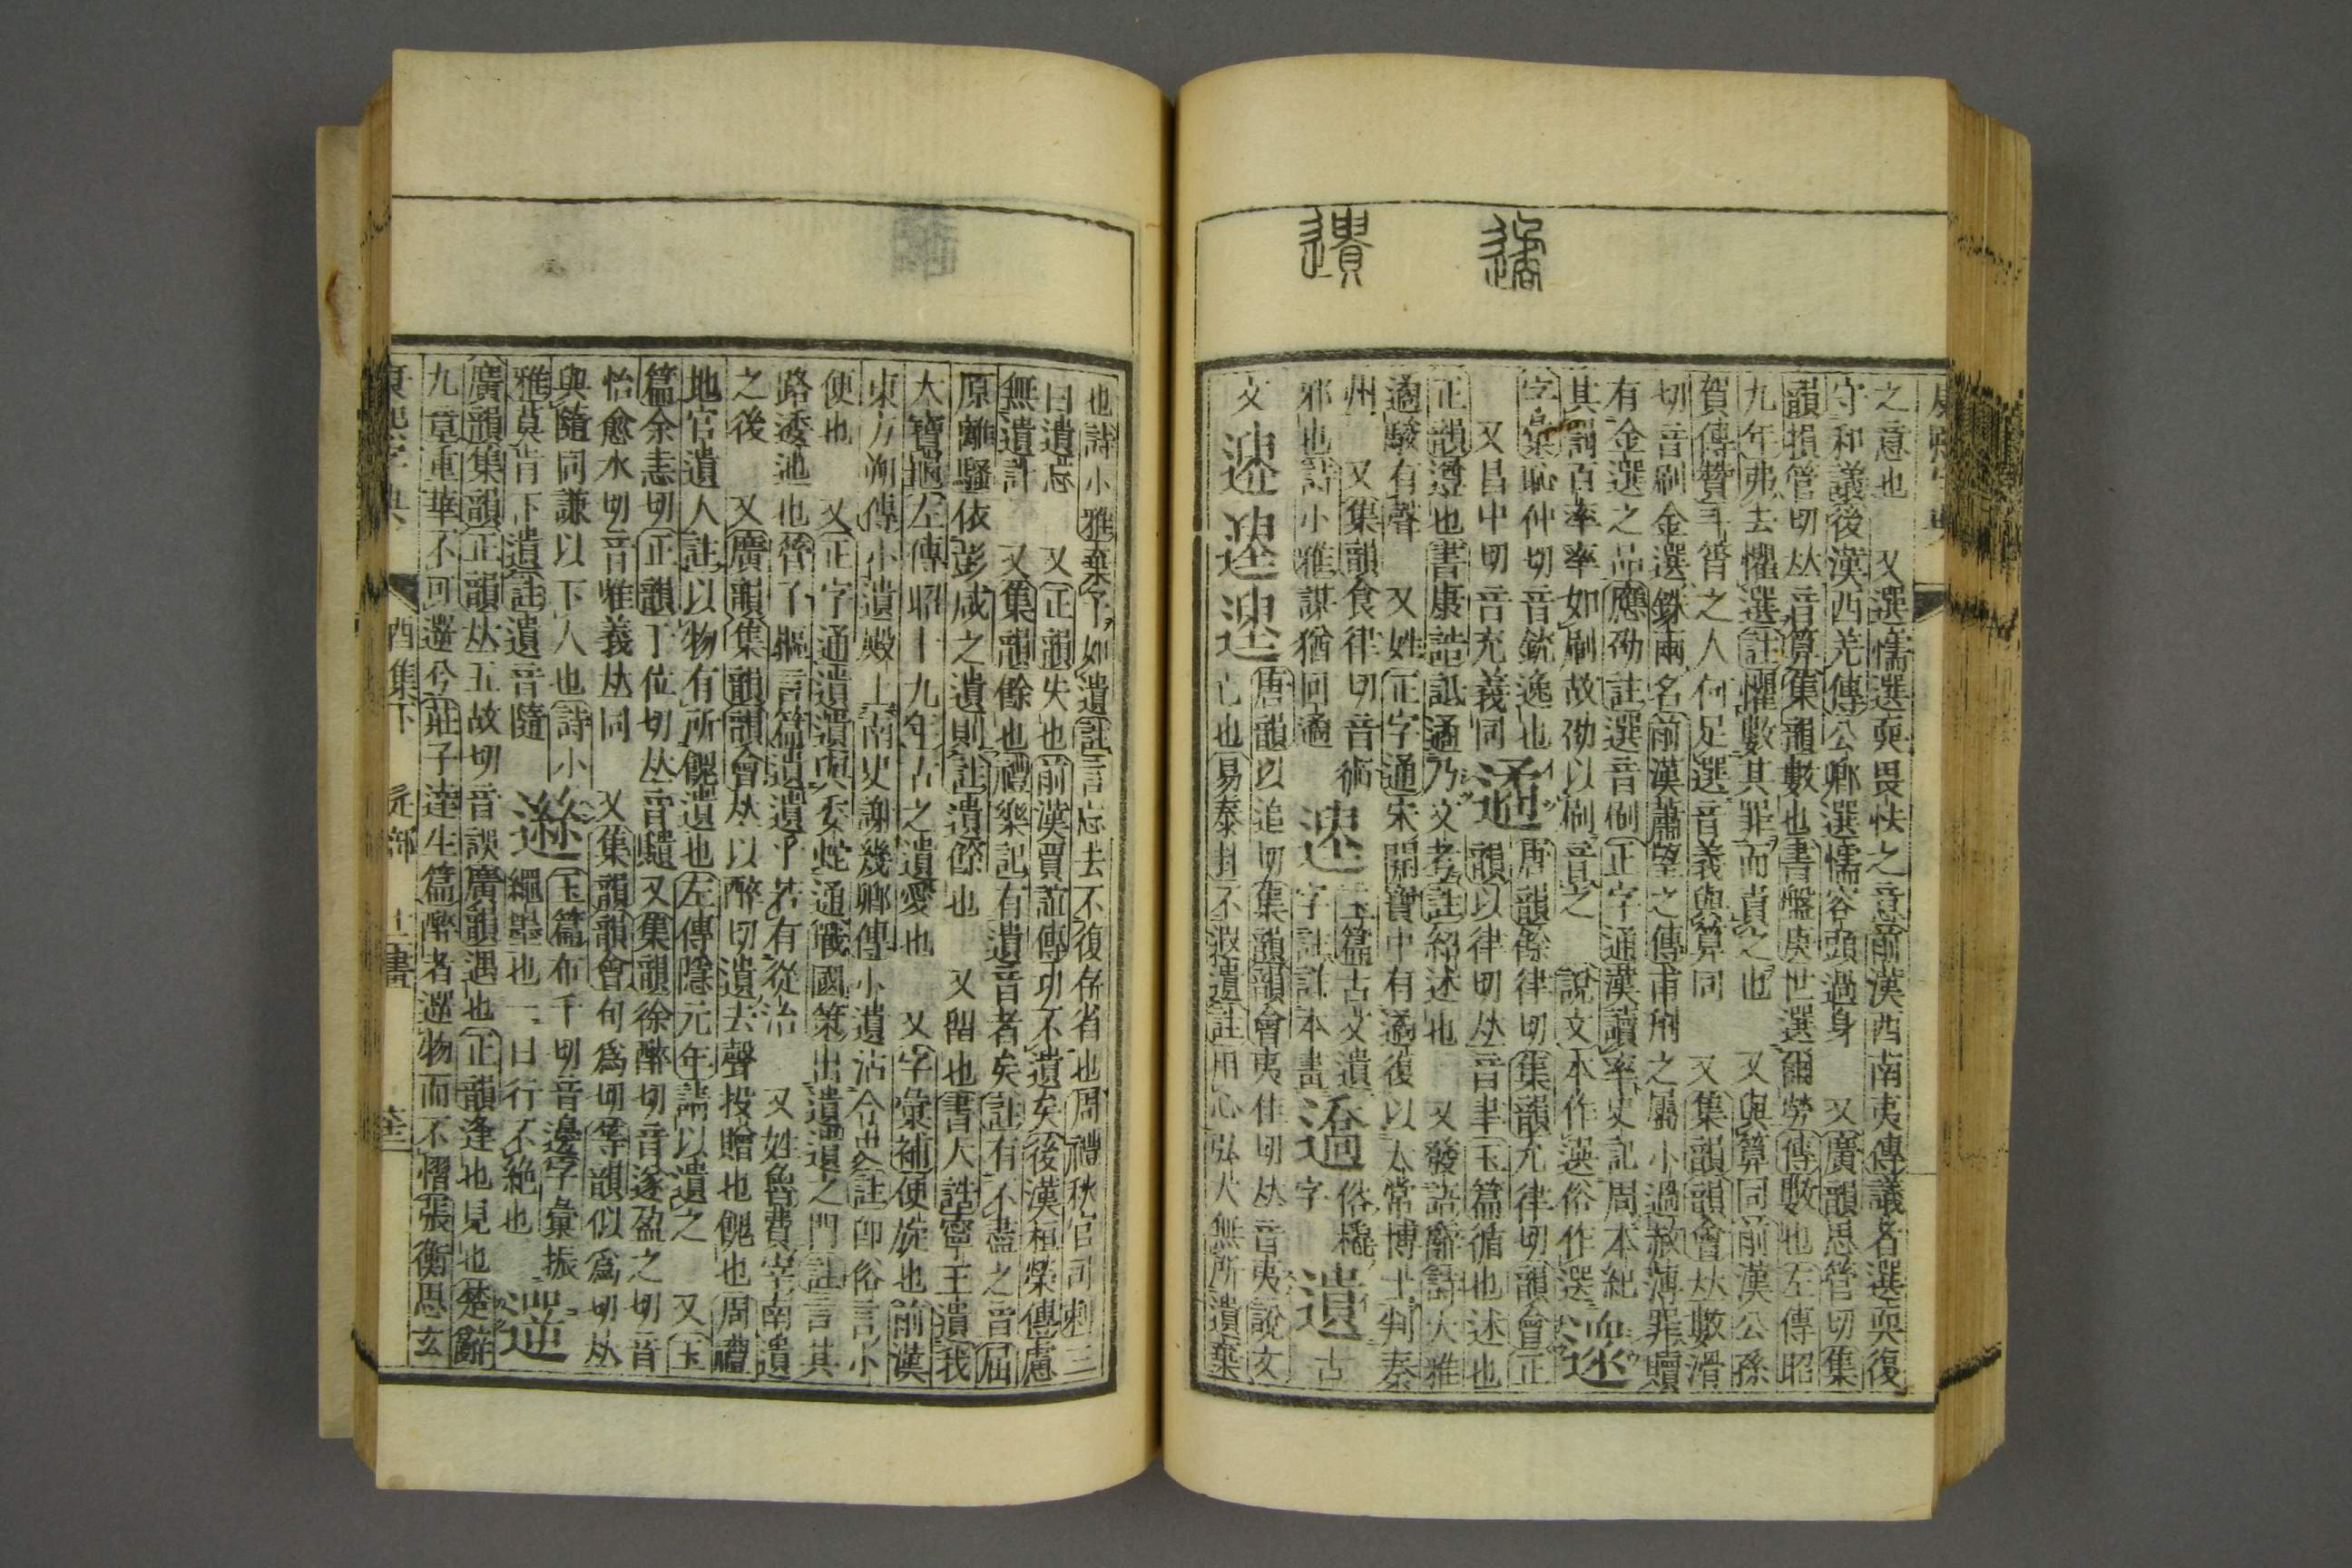 遹
遺
康熙字典
之意也　又選懦選耎畏怯之意前漢西南夷傳議者選耎復
守和議後漢西羌傳公卿選懦容頭過身　又廣韻思管切集
韻損管切𠀤音算集韻數也書盤庚世選爾勞傳數也左傳昭
九年弗去懼選註懼數其罪而責之也　又與算同前漢公孫
賀傳贊斗筲之人何足選音義與算同　又集韻韻會𠀤數滑
切音刷金選銖兩名前漢蕭望之傳甫𠛬之屬小過赦薄罪贖
有金選之品應劭註選音刷正字通漢讀率史記周本紀
其罰百率率如刷故劭以刷音之　說文本作𨕖俗作選
字彙恥仲切音銃逸也　遹　唐韻餘律切集韻允律切韻會正
又昌中切音充義同　韻以律切𠀤音聿玉篇循也述也
正韻遵也書康誥祗遹乃文考註紹述也　又發語辭詩大雅
遹駿有聲　又姓正字通宋開寶中有遹復以太常博士判秦
州　又集韻食律切音術　玉篇古文遺　俗橇
邪也詩小雅謀猶回遹　字註詳本畫　字　遺　古
文　唐韻以追切集韻韻會夷隹切𠀤音夷說文
亡也易泰卦不遐遺註用心弘大無所遺棄
也詩小雅棄予如遺註言忘去不復存省也周禮秋官司刺三
曰遺忘　又正韻失也前漢賈誼傳功不遺矣後漢桓榮傳慮
無遺計　又集韻餘也禮樂記有遺音者矣註有不盡之音屈
原離騷依彭咸之遺則註遺餘也　又留也書大誥寧王遺我
大寶龜左傳昭十九年古之遺愛也　又字彙補便旋也前漢
東方朔傳小遺殿上南史謝幾卿傳小遺沾令史註卽俗言小
便也　又正字通遺遺與委蛇通戰國策出遺遺之門註言其
路逶迤也管子樞言篇遺遺乎若有從治　又姓魯費宰南遺
之後　又廣韻集韻韻會𠀤以醉切遺去聲投贈也餽也周禮
地官遺人註以物有所餽遺也左傳隱元年請以遺之　又玉
篇余恚切正韻于位切𠀤音䜐又集韻徐醉切音遂盈之切音
怡愈水切音唯義𠀤同　又集韻韻會旬爲切等韻似爲切𠀤
與隨同謙以下人也詩小　玉篇布千切音邊字彙振
雅莫肯下遺註遺音隨　繩墨也一曰行不絶也　遻
廣韻集韻正韻𠀤五故切音誤廣韻遇也正韻逢也見也楚辭
九章重華不可遻兮莊子達生篇醉者遻物而不慴張衡思玄
康熙字典　酉集下　辵部　十二畫